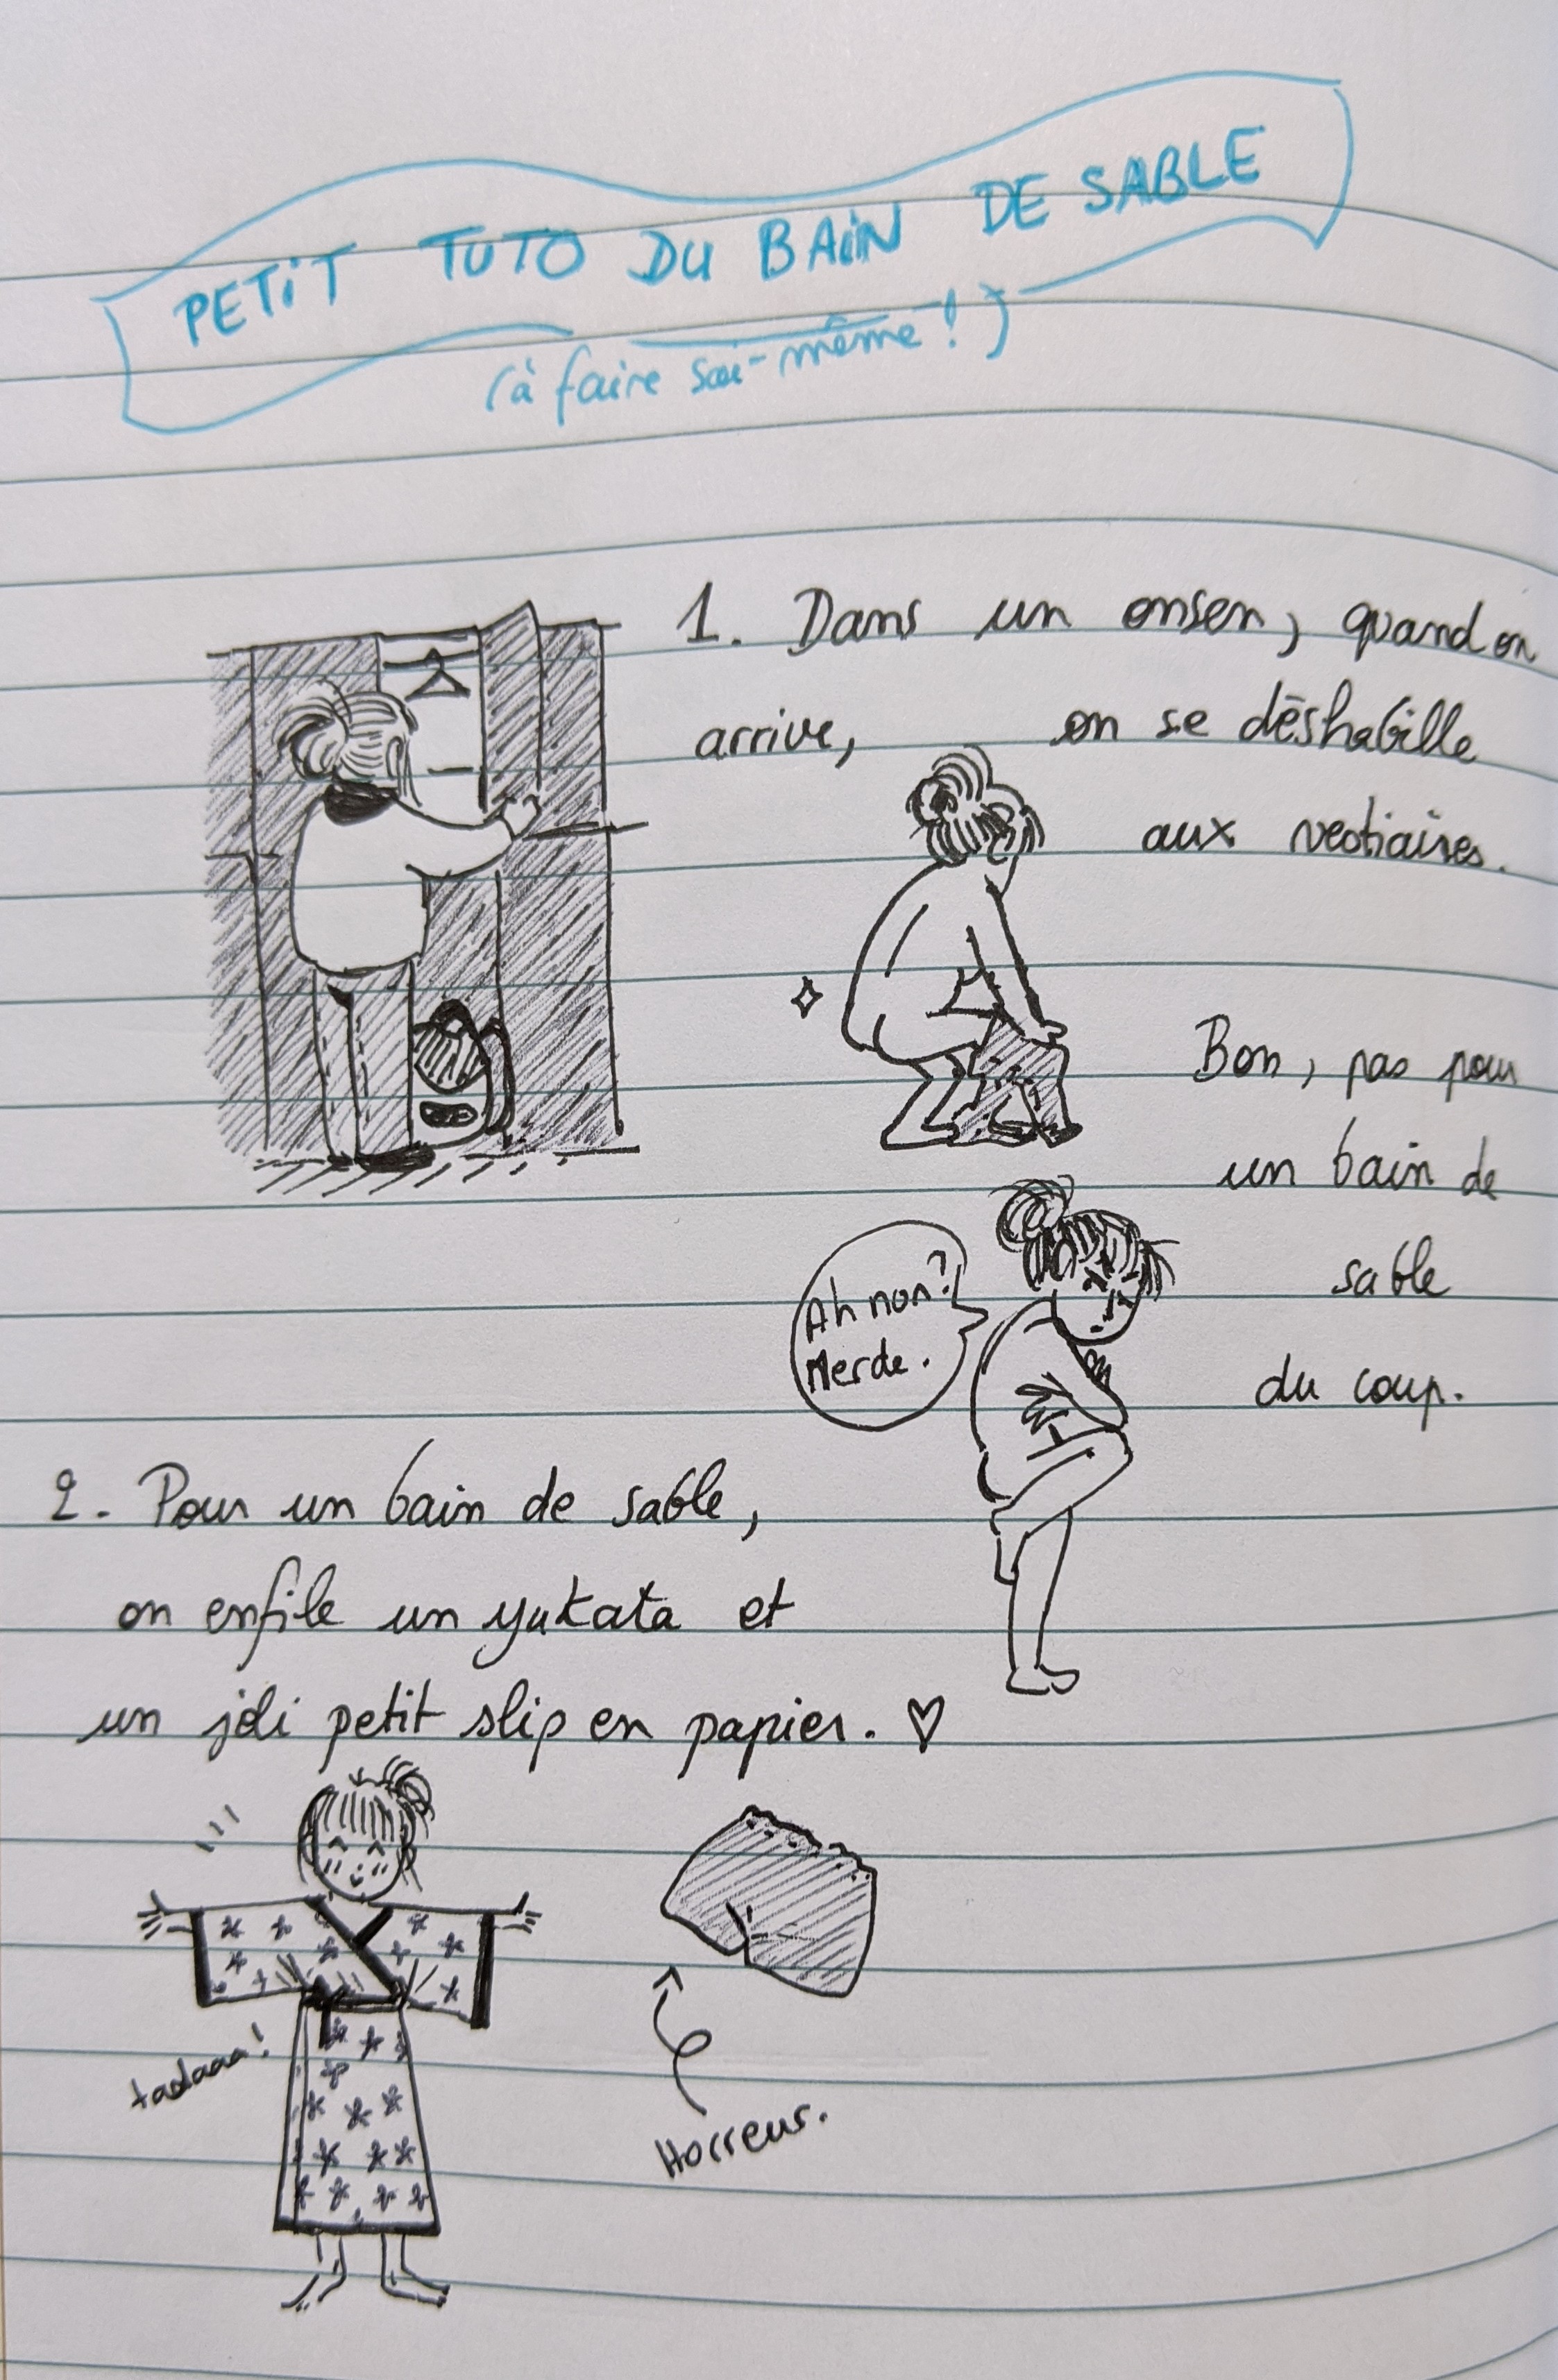 PETiT TUTO DU BAiN DE SABLE
(à faire soi-même !)
1. Dans un onsen, quand on
arrive, on se déshabille
aux vestiaires.
Bon, pas pour
un bain de
sable
du coup.
Ah non?
Merde.
2. Pour un bain de sable,
on enfile un yukata et
un joli petit slip en papier. ♡
tadaaa!
Horreur.